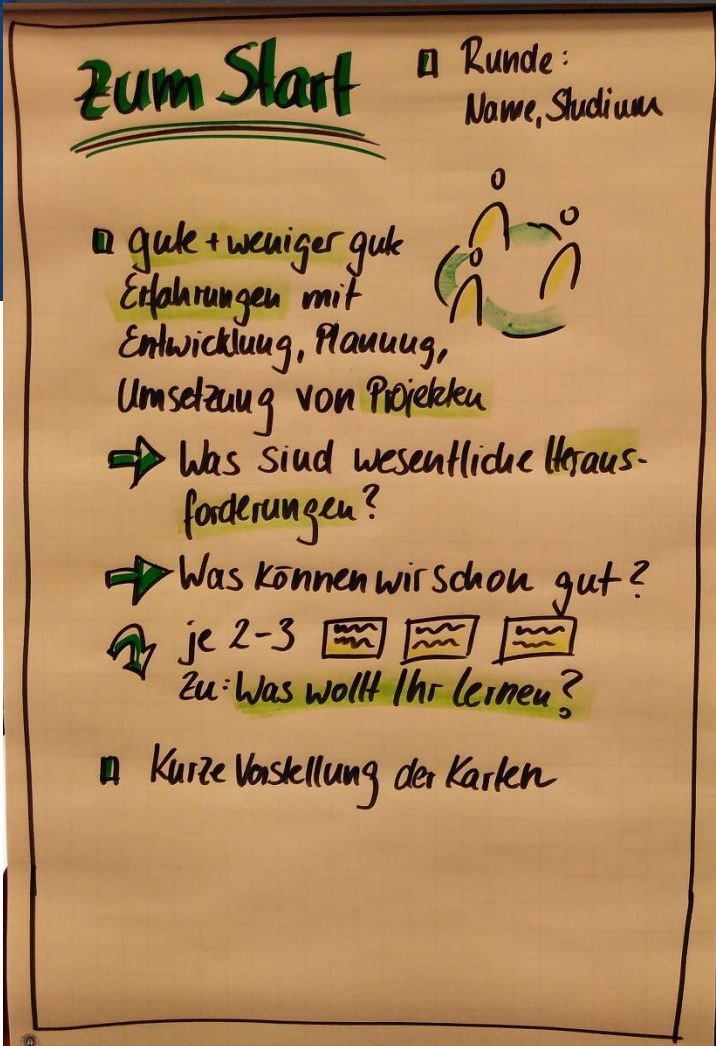 Zum Start
Runde:
Name, Studium
gute + weniger gute
Erfahrungen mit
Entwicklung, Planung,
Umsetzung von Projekten
Was sind wesentliche Heraus-
forderungen?
Was können wir schon gut?
je 2-3
zu: Was wollt Ihr lernen?
Kurze Vorstellung der Karten